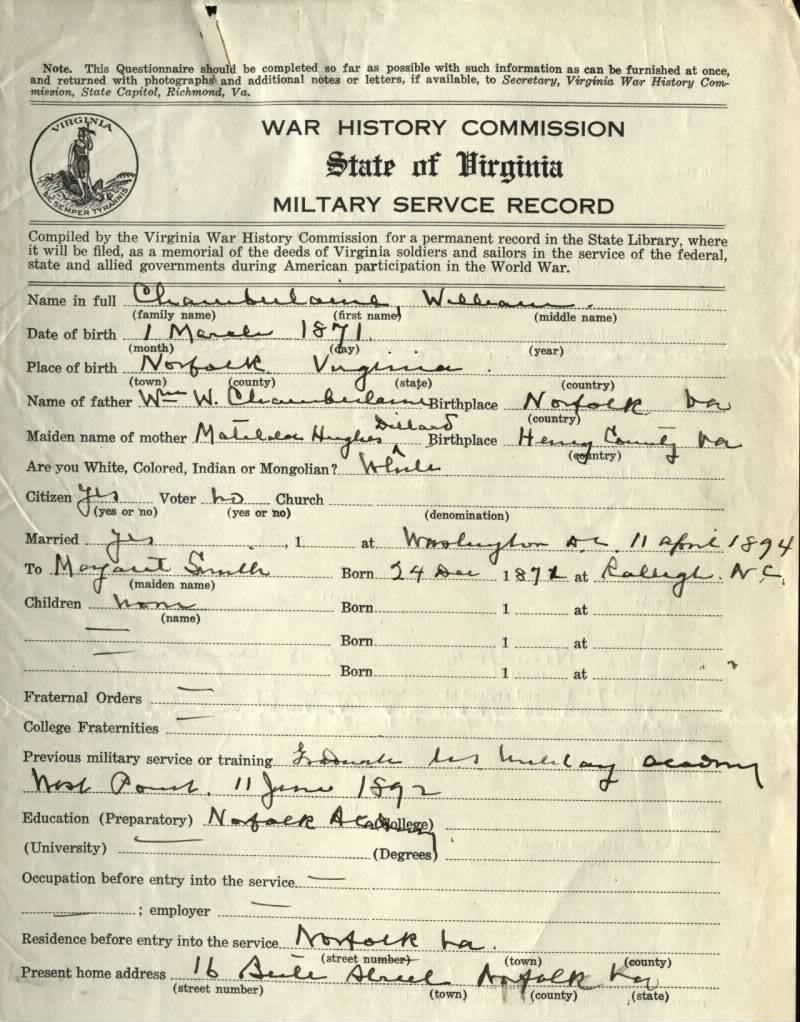 Note. This Questionnaire should be completed so far as possible with such information as can be furnished at once,
and returned with photographs and additional notes or letters, if available, to Secretary, Virginia War History Com-
mission, State Capitol, Richmond, Va.
VIRGINIA
SIC SEMPER TYRANNIS
WAR HISTORY COMMISSION
State of Virginia
MILTARY SERVCE RECORD
Compiled by the Virginia War History Commission for a permanent record in the State Library, where
it will be filed, as a memorial of the deeds of Virginia soldiers and sailors in the service of the federal,
state and allied governments during American participation in the World War.
Name in full Chamberlaine, William.
(family name) (first name) (middle name)
Date of birth 1 March 1871.
(month) (day) (year)
Place of birth Norfolk Virginia.
(town) (county) (state) (country)
Name of father Wm W. Chamberlaine Birthplace Norfolk Va
(country)
Maiden name of mother Matilda Hughes Dillard Birthplace Henry County Va
(country)
Are you White, Colored, Indian or Mongolian? White
Citizen Yes Voter No Church
(yes or no) (yes or no) (denomination)
Married Yes, 1 at Washington D.C. 11 April 1894
To Margaret Smith Born 24 Dec 1872 at Raleigh. N.C.
(maiden name)
Children None Born 1 at
(name)
Born 1 at
Born 1 at
Fraternal Orders
College Fraternities
Previous military service or training Graduate U S Military Academy
West Point. 11 June 1892
Education (Preparatory) Norfolk Academy (College)
(University) (Degrees)
Occupation before entry into the service
; employer
Residence before entry into the service Norfolk Va.
(street number) (town) (county)
Present home address 16 Street Norfolk Va
(street number) (town) (county) (state)